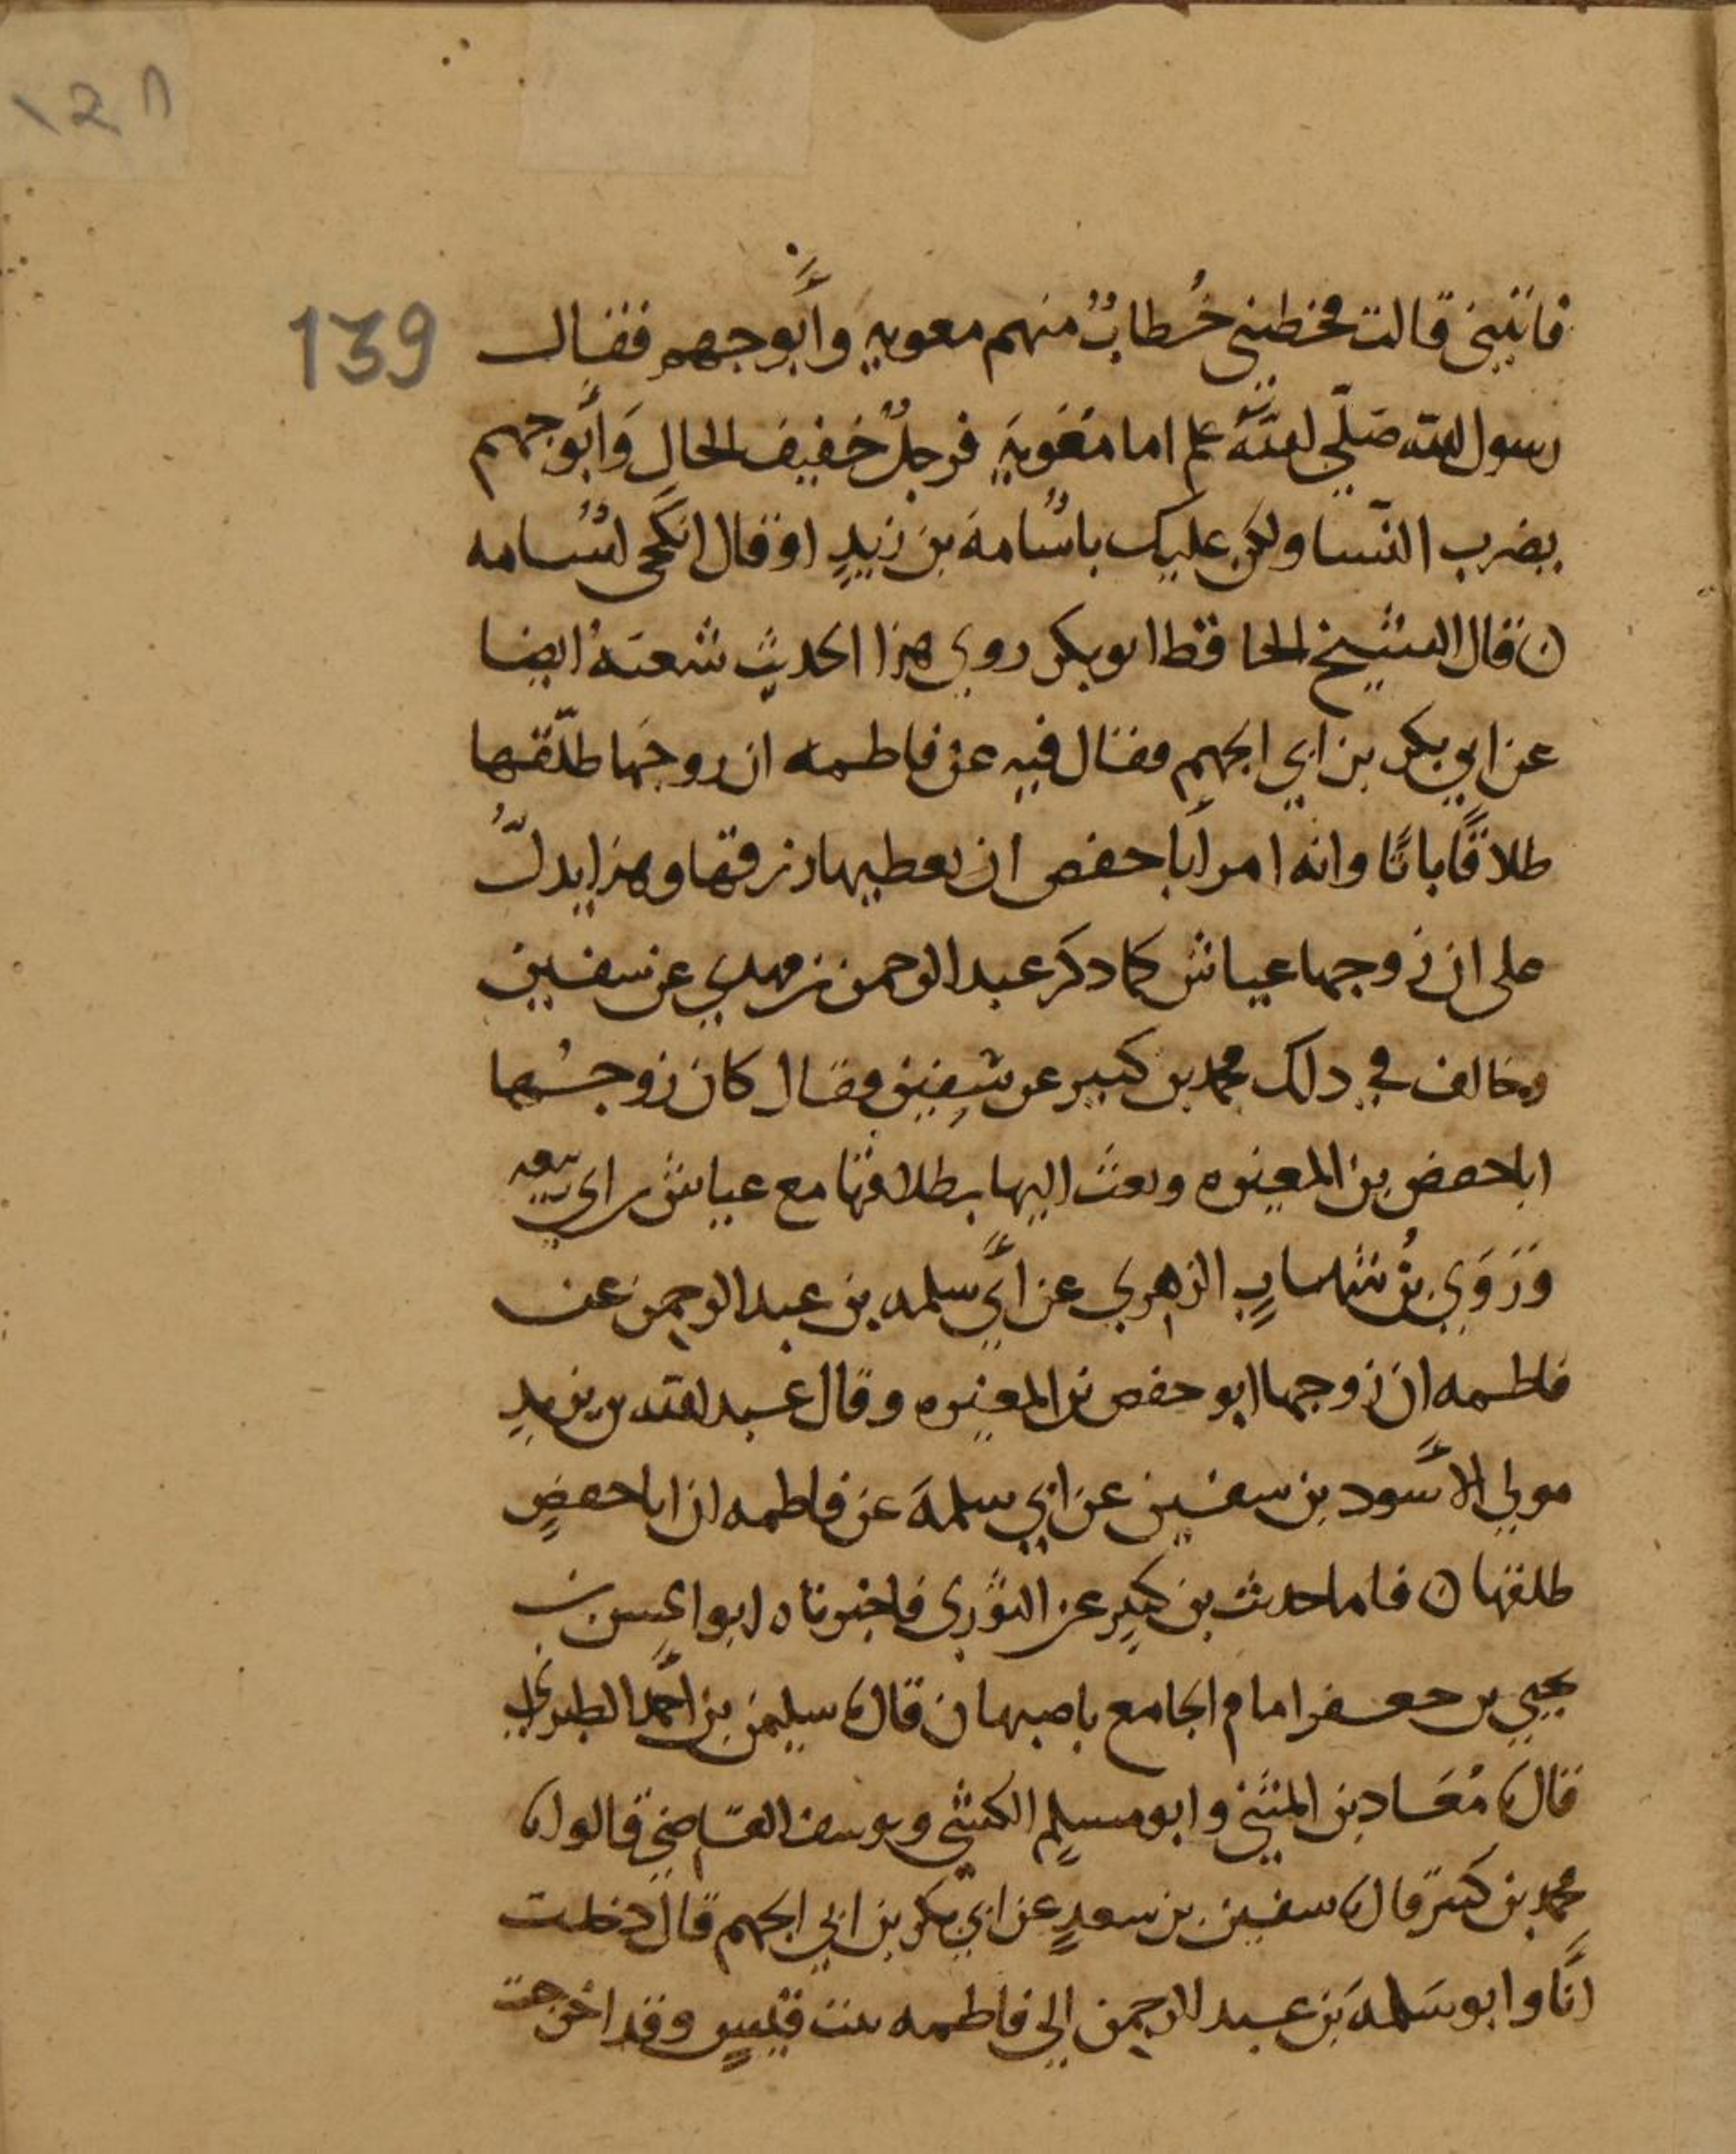 ١٣٨
139
فاتيني قالت فخطبني خُطابٌ منهم معويه وأبوجهم فقال
رسول الله صَلّى الله علم اما مَعَويةِ فرجلٌ خفيف الحال وَأبوجهم
يضرب النّسا ولكن عليك باسُامة بن زيدٍ او قال انكحى اسُامه
ن قال الشيخ الحافظ ابوبكر روى هذا الحديث شعبَهُ ايضا
عن ابي بكر بن ابي الجهم فقال فيه عن فاطمه ان زوجَها طلّقها
طلاقًا باتًا وانه امر أبا حفص ان يعطيها رزقها وهذا يدلُّ
على ان زوجها عياش كما ذكر عبد الرحمن بن مهدي عن سفين
وخالف في دلك محمد بن كثير عن سفين فقال كان زوجُها
ابا حفص بن المغيره وبعث اليها بطلاقها مع عياش بن ابي ربيعه
وَرَوَى بنُ شهابٍ الزهري عن أبي سلمه بن عبد الرحمن عن
فاطمه ان زوجها ابو حفص بن المغيره وقال عبد الله بن يزيد
مولى الأسود بن سفين عن ابي سلمةَ عن فاطمه ان ابا حفصٍ
طلقها ن فاما حديث بن كثير عن الثوري فاخبرناه ابو الحسن بن
يحيى بن جعفر امام الجامع باصبهان قال نا سليمن بن أحمد الطبراني
قال نا مُعَاذ بن المثنى وابو مسلم الكشي ويوسف القاضي قالوا نا
محمد بن كثير قال نا سفين بن سعيدٍ عن ابي بكر بن ابي الجهم قال دخلت
انَا وابو سَلمةَ بن عبد الرحمن الى فاطمه بنت قيسٍ وقد اخرجت